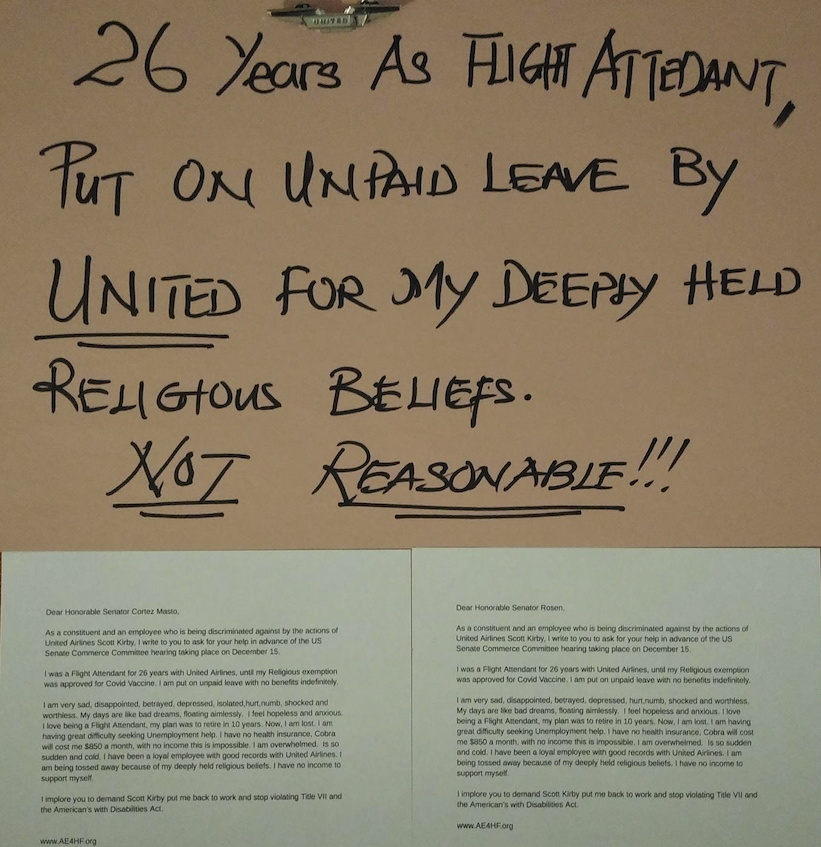 UNITED
26 Years As FLIGHT ATTEDANT,
PUT ON UNPAID LEAVE BY
UNITED FOR MY DEEPLY HELD
RELIGIOUS BELIEFS.
NOT REASONABLE!!!
Dear Honorable Senator Cortez Masto,
As a constituent and an employee who is being discriminated against by the actions of
United Airlines Scott Kirby, I write to you to ask for your help in advance of the US
Senate Commerce Committee hearing taking place on December 15.
I was a Flight Attendant for 26 years with United Airlines, until my Religious exemption
was approved for Covid Vaccine. I am put on unpaid leave with no benefits indefinitely.
I am very sad, disappointed, betrayed, depressed, isolated,hurt,numb, shocked and
worthless. My days are like bad dreams, floating aimlessly. I feel hopeless and anxious.
I love being a Flight Attendant, my plan was to retire in 10 years. Now, I am lost. I am
having great difficulty seeking Unemployment help. I have no health insurance, Cobra
will cost me $850 a month, with no income this is impossible. I am overwhelmed. Is so
sudden and cold. I have been a loyal employee with good records with United Airlines. I
am being tossed away because of my deeply held religious beliefs. I have no income to
support myself.
I implore you to demand Scott Kirby put me back to work and stop violating Title VII and
the American's with Disabilities Act.
www.AE4HF.org
Dear Honorable Senator Rosen,
As a constituent and an employee who is being discriminated against by the actions of
United Airlines Scott Kirby, I write to you to ask for your help in advance of the US
Senate Commerce Committee hearing taking place on December 15.
I was a Flight Attendant for 26 years with United Airlines, until my Religious exemption
was approved for Covid Vaccine. I am put on unpaid leave with no benefits indefinitely.
I am very sad, disappointed, betrayed, depressed, hurt,numb, shocked and worthless.
My days are like bad dreams, floating aimlessly. I feel hopeless and anxious. I love
being a Flight Attendant, my plan was to retire in 10 years. Now, I am lost. I am having
great difficulty seeking Unemployment help. I have no health insurance, Cobra will cost
me $850 a month, with no income this is impossible. I am overwhelmed. Is so sudden
and cold. I have been a loyal employee with good records with United Airlines. I am
being tossed away because of my deeply held religious beliefs. I have no income to
support myself.
I implore you to demand Scott Kirby put me back to work and stop violating Title VII and
the American's with Disabilities Act.
www.AE4HF.org